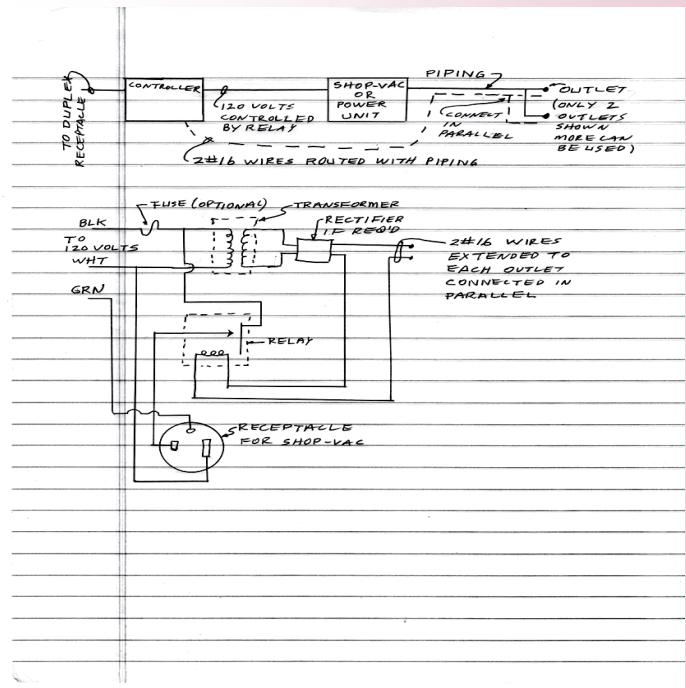 TO DUPLEX
RECEPTACLE
CONTROLLER
120 VOLTS
CONTROLLED
BY RELAY
SHOP-VAC
OR
POWER
UNIT
PIPING
CONNECT
IN
PARALLEL
OUTLET
(ONLY 2
OUTLETS
SHOWN
MORE CAN
BE USED)
2#16 WIRES ROUTED WITH PIPING
FUSE (OPTIONAL)
TRANSFORMER
RECTIFIER
IF REQ'D
BLK
TO
120 VOLTS
WHT
GRN
2#16 WIRES
EXTENDED TO
EACH OUTLET
CONNECTED IN
PARALLEL
RELAY
RECEPTACLE
FOR SHOP-VAC